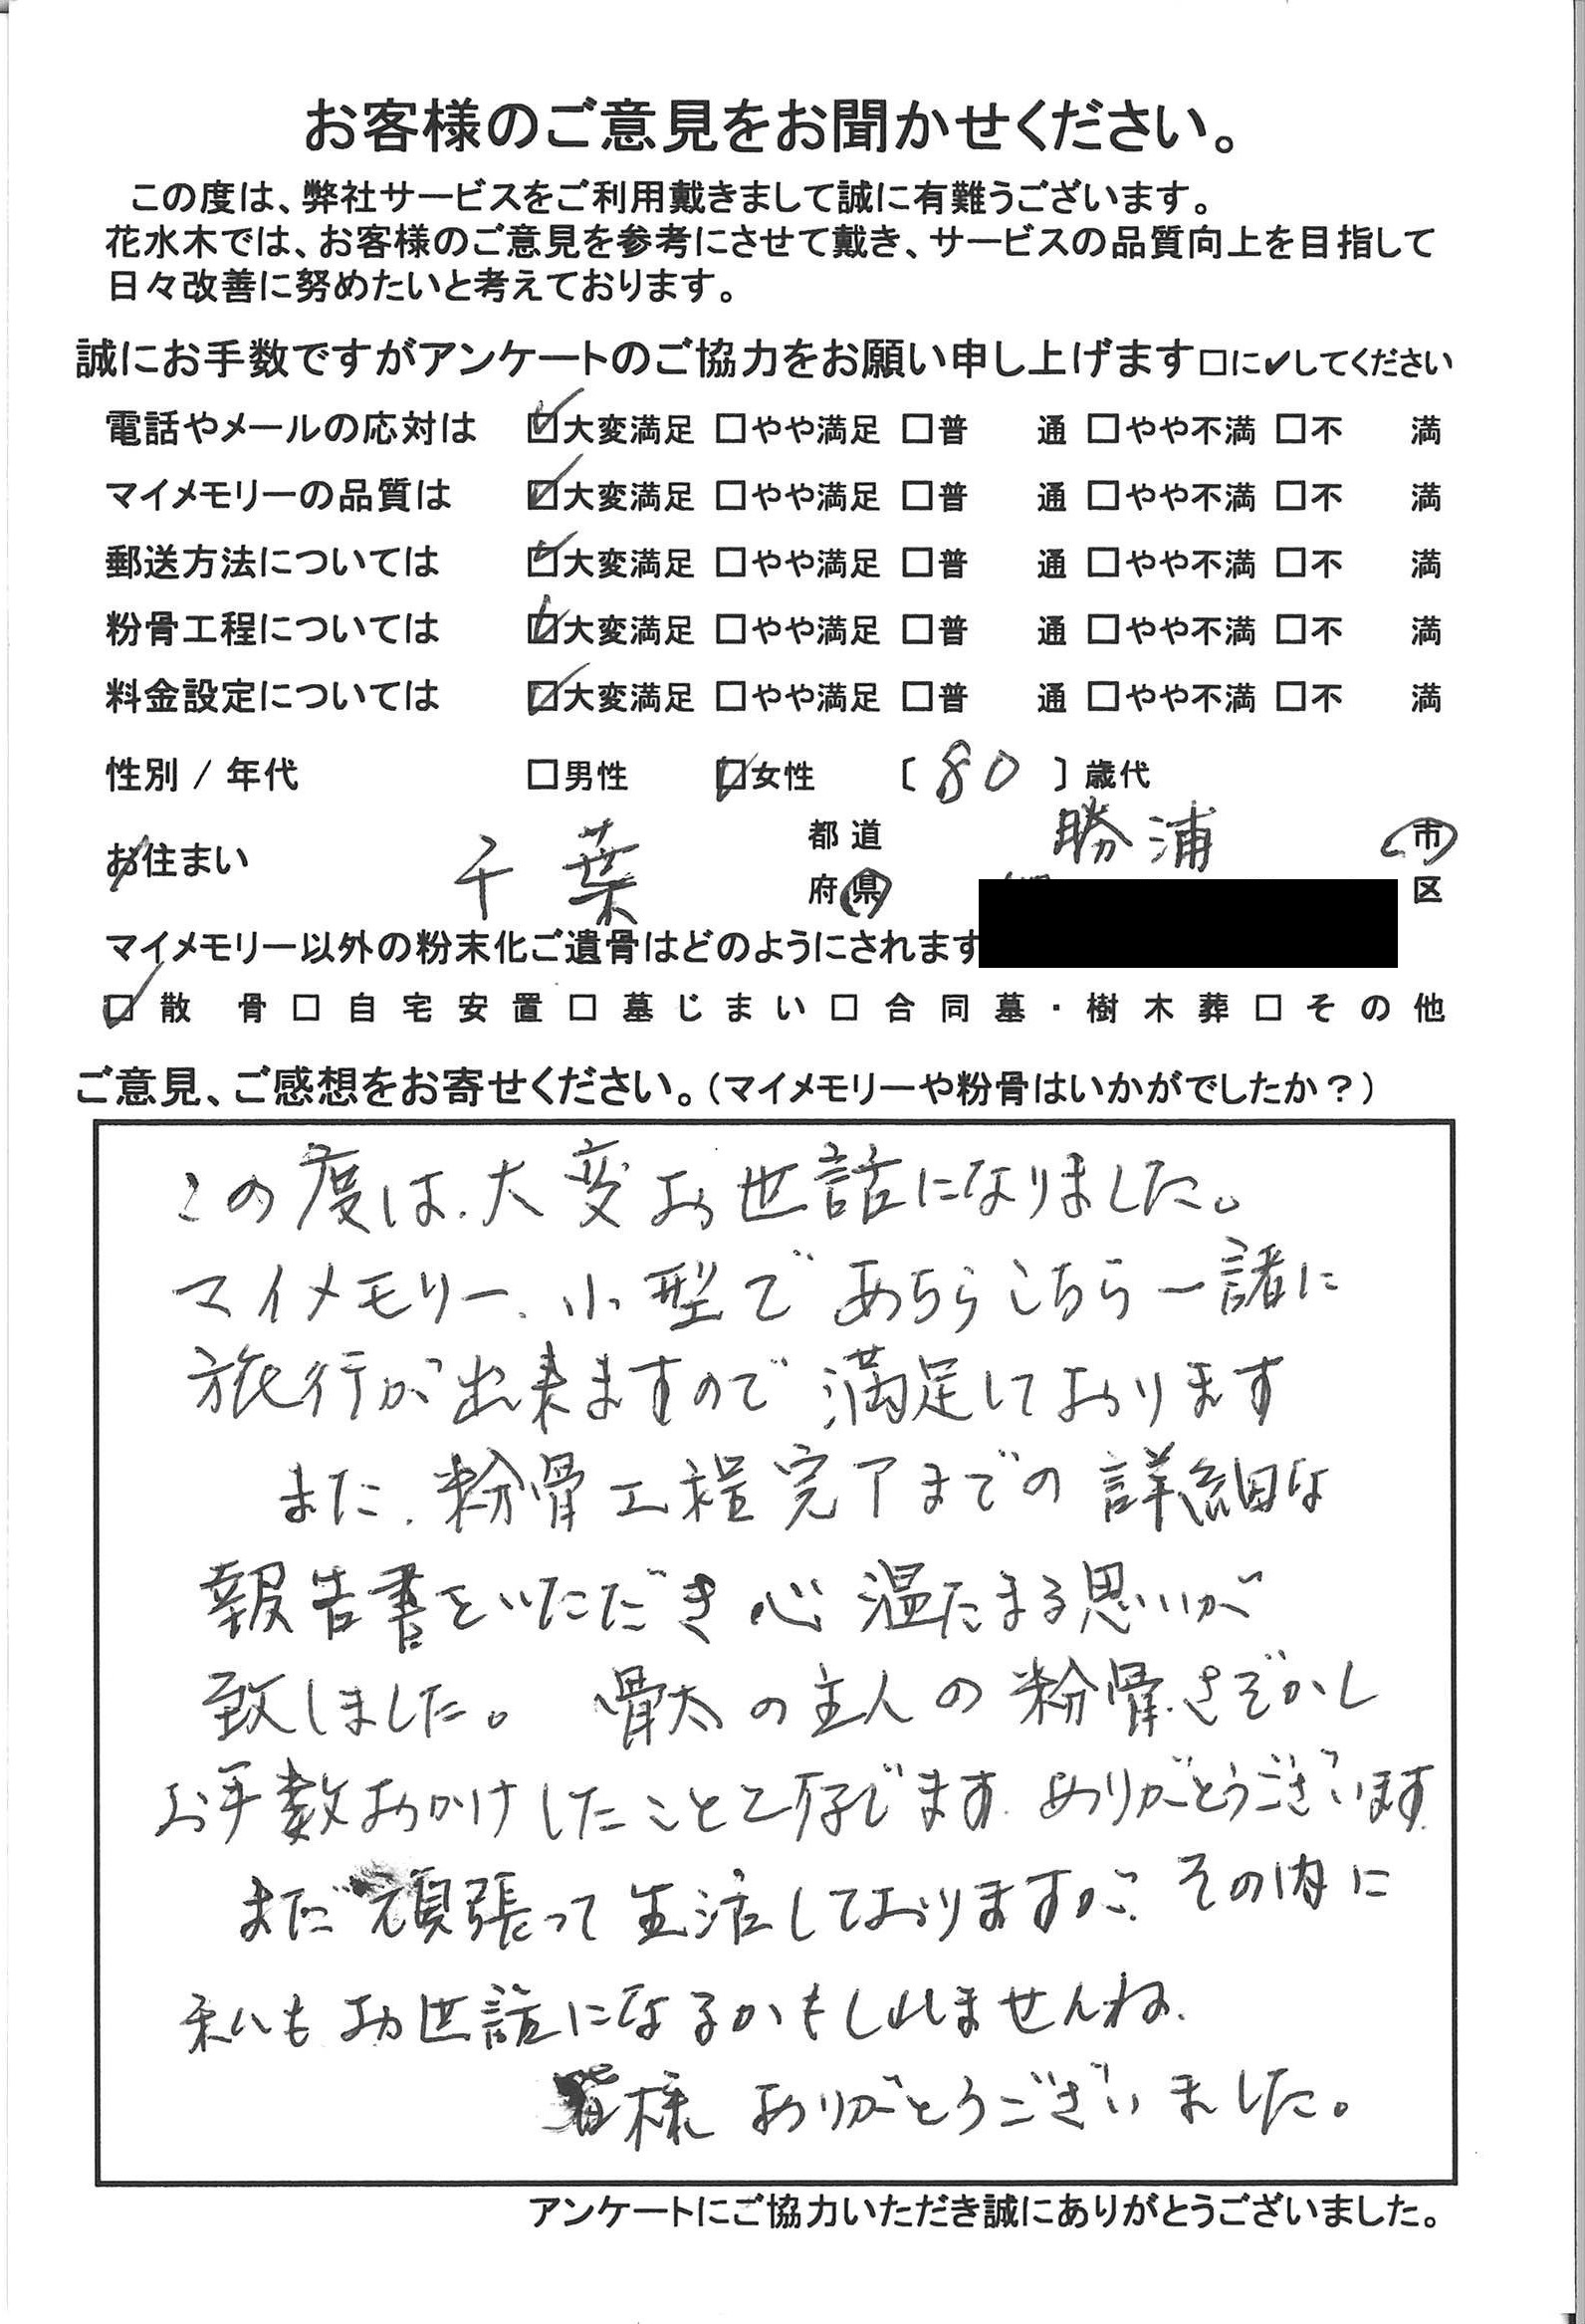 お客様のご意見をお聞かせください。
この度は、弊社サービスをご利用戴きまして誠に有難うございます。
花水木では、お客様のご意見を参考にさせて戴き、サービスの品質向上を目指して
日々改善に努めたいと考えております。
誠にお手数ですがアンケートのご協力をお願い申し上げます□に✔してください
電話やメールの応対は ☑大変満足 □やや満足 □普 通 □やや不満 □不 満
マイメモリーの品質は ☑大変満足 □やや満足 □普 通 □やや不満 □不 満
郵送方法については ☑大変満足 □やや満足 □普 通 □やや不満 □不 満
粉骨工程については ☑大変満足 □やや満足 □普 通 □やや不満 □不 満
料金設定については ☑大変満足 □やや満足 □普 通 □やや不満 □不 満
性別 / 年代 □男性 ☑女性 〔 80 〕歳代
お住まい 千葉 都道府県 勝浦 市区
マイメモリー以外の粉末化ご遺骨はどのようにされます
☑散 骨 □自宅安置 □墓じまい □合同墓・樹木葬 □その他
ご意見、ご感想をお寄せください。(マイメモリーや粉骨はいかがでしたか?)
この度は、大変お世話になりました。
マイメモリー、小型であちらこちら一諸に
旅行が出来ますので満足しております
また、粉骨工程完了までの詳細な
報告書をいただき心温たまる思いが
致しました。骨太の主人の粉骨、さぞかし
お手数おかけしたことと存じます、ありがとうございます
まだ頑張って生活しておりますが、その内に
私もお世話になるかもしれませんね、
皆様ありがとうございました。
アンケートにご協力いただき誠にありがとうございました。